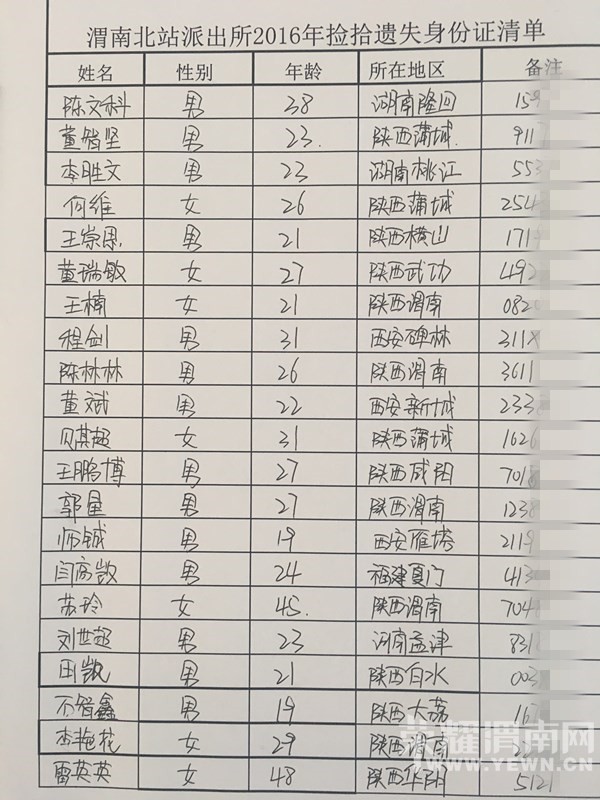 渭南北站派出所2016年捡拾遗失身份证清单
姓名 性别 年龄 所在地区 备注
陈文科 男 38 湖南隆回 159
董智坚 男 23. 陕西蒲城. 911
李胜文 男 23 湖南桃江 553
何维 女 26 陕西蒲城 254
王崇恩 男 21 陕西横山 171
董瑞敏 女 27 陕西武功 492
王楠 女 21 陕西渭南 082
程剑 男 31 西安碑林 311
陈林林 男 26 陕西渭南 3611
董斌 男 22 西安新城 233
贝其超 女 31 陕西蒲城 1626
王鹏博 男 27 陕西咸阳 701
郭量 男 27 陕西渭南 123
师铖 男 19 西安雁塔 2119
闫高凯 男 24 福建厦门 413
苏玲 女 45. 陕西渭南 704
刘世超 男 23 河南孟津 831
田凯 男 21 陕西白水 003
智鑫 男 19 陕西大荔 16
李艳花 女 29 陕西渭南 2
雷英英 女 48 陕西华阴 5121
荣耀渭南网
WWW.YEWN.CN